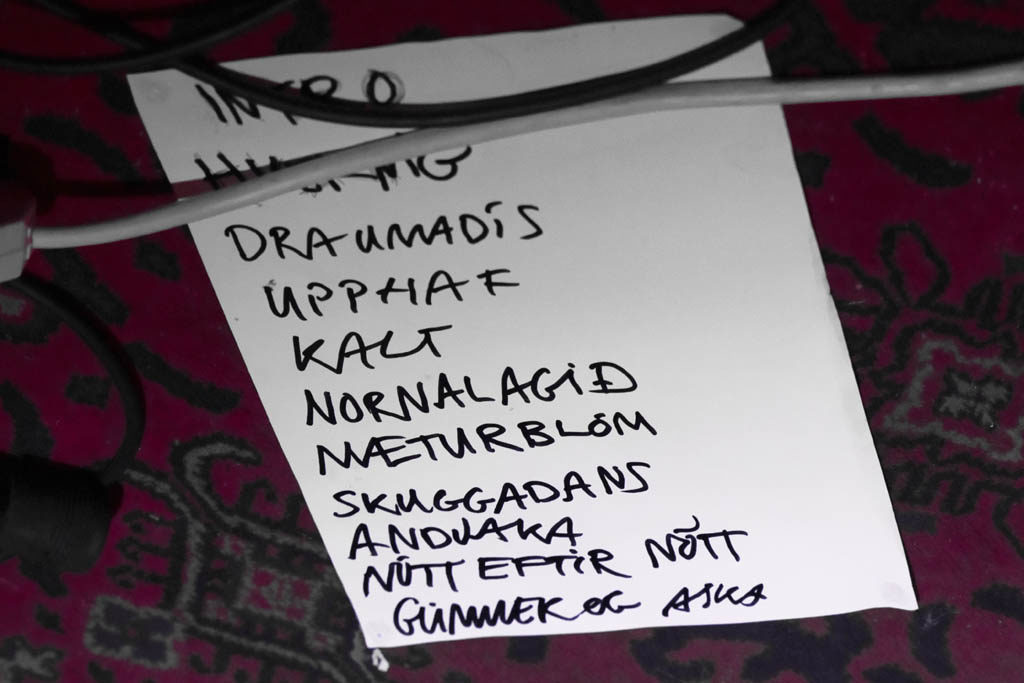 INTRO
DRAUMADÍS
UPPHAF
KALT
NORNALAGIÐ
NÆTURBLÓM
SKUGGADANS
ANDVAKA
NÓTT EFTIR NÓTT
OG ASKA